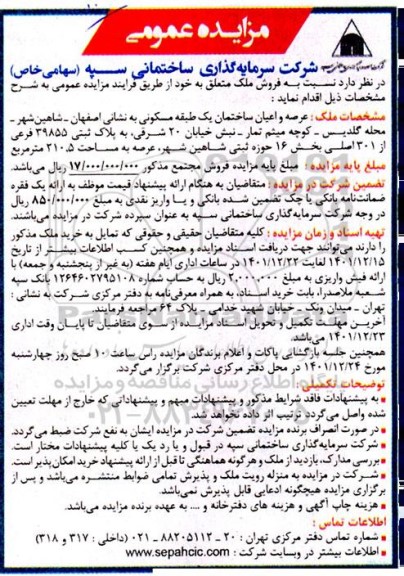 مزایده عمومی
شرکت سرمایه‌گذاری ساختمانی سپه (سهامی خاص)
در نظر دارد نسبت به فروش ملک متعلق به خود از طریق فرایند مزایده عمومی به شرح
مشخصات ذیل اقدام نماید :
مشخصات ملک : عرصه و اعیان ساختمان یک طبقه مسکونی به نشانی اصفهان - شاهین‌شهر -
محله گلدیس - کوچه میثم تمار - نبش خیابان ۲۰ شرقی، به پلاک ثبتی ۳۹۸۵۵ فرعی
از ۳۰۱ اصلی بخش ۱۶ حوزه ثبتی شاهین شهر، عرصه به مساحت ۲۱۰.۵ مترمربع
مبلغ پایه مزایده : مبلغ پایه مزایده فروش مجتمع مذکور ۱۷/۰۰۰/۰۰۰/۰۰۰ ریال می‌باشد.
تضمین شرکت در مزایده : متقاضیان به هنگام ارائه پیشنهاد قیمت موظف به ارائه یک فقره
ضمانت‌نامه بانکی یا چک تضمین شده بانکی و یا واریز نقدی به مبلغ ۸۵۰/۰۰۰/۰۰۰ ریال
در وجه شرکت سرمایه‌گذاری ساختمانی سپه به عنوان سپرده شرکت در مزایده می‌باشند.
تهیه اسناد و زمان مزایده : کلیه متقاضیان حقیقی و حقوقی که تمایل به خرید ملک مذکور
را دارند می‌توانند جهت دریافت اسناد مزایده و همچنین کسب اطلاعات بیشتر از تاریخ
۱۴۰۱/۱۲/۱۵ لغایت ۱۴۰۱/۱۲/۲۲ در ساعات اداری ایام هفته (به غیر از پنجشنبه و جمعه) با
ارائه فیش واریزی به مبلغ ۲.۰۰۰.۰۰۰ ریال به حساب شماره ۱۲۶۴۶۰۲۷۹۵۱۰۸ بانک سپه
شعبه ملاصدرا، بابت خرید اسناد، به همراه معرفی‌نامه به دفتر مرکزی شرکت به نشانی :
تهران - میدان ونک - خیابان شهید خدامی - پلاک ۶۴ مراجعه فرمایند.
آخرین مهلت تکمیل و تحویل اسناد مزایده از سوی متقاضیان تا پایان وقت اداری
۱۴۰۱/۱۲/۲۳ می‌باشد.
همچنین جلسه بازگشایی پاکات و اعلام برندگان مزایده راس ساعت ۱۰ صبح روز چهارشنبه
مورخ ۱۴۰۱/۱۲/۲۴ در محل دفتر مرکزی شرکت برگزار می‌گردد.
توضیحات تکمیلی :
به پیشنهادات فاقد شرایط مذکور و پیشنهادات مبهم و پیشنهاداتی که خارج از مهلت تعیین
شده واصل می‌گردد ترتیب اثر داده نخواهد شد.
در صورت انصراف برنده مزایده تضمین شرکت در مزایده ایشان به نفع شرکت ضبط می‌گردد.
شرکت سرمایه‌گذاری ساختمانی سپه در قبول و یا رد یک یا کلیه پیشنهادات مختار است.
بررسی مدارک، بازدید از ملک و هرگونه هماهنگی تا قبل از ارائه پیشنهاد خرید امکان‌پذیر است.
شرکت در مزایده به منزله رویت ملک و پذیرش تمامی ضوابط منتشره می‌باشد و پس از
برگزاری مزایده هیچگونه ادعایی قابل پذیرش نمی‌باشد.
هزینه چاپ آگهی و هزینه های دفترخانه و .... به عهده برنده مزایده می‌باشد.
اطلاعات تماس :
شماره تماس دفتر مرکزی تهران : ۲۰ - ۸۸۲۰۵۱۱۲ - ۰۲۱ (داخلی : ۳۱۷ و ۳۱۸)
اطلاعات بیشتر در وبسایت شرکت : www.sepahcic.com